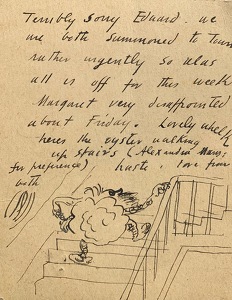 Terribly sorry Eduard. we
are both summoned to Town
rather urgently so alas
all is off for this week
Margaret very disappointed
about Friday. Lovely
heres the oyster walking
up stairs (Alexandra
for preference) haste. love from
both